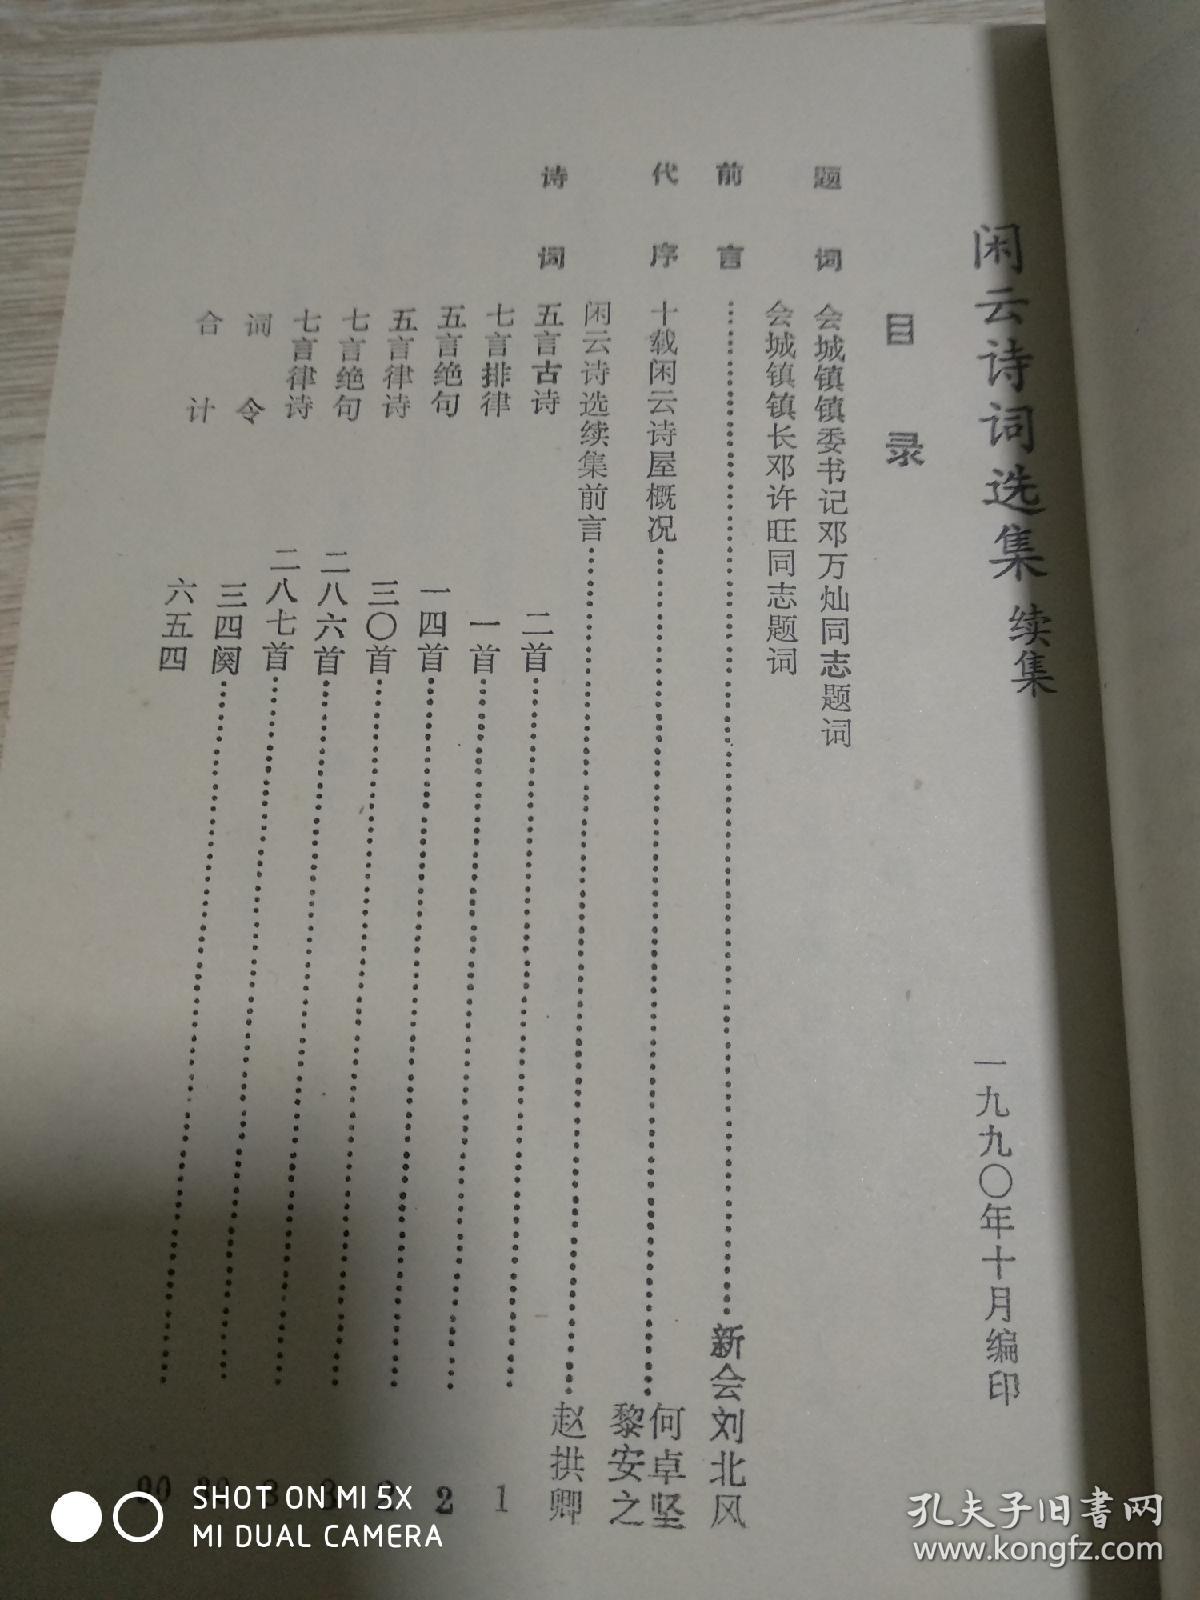 闲云诗词选集 续集
一九九〇年十月编印
目录
题词 会城镇镇委书记邓万灿同志题词
会城镇镇长邓许旺同志题词
前言……新会刘北风
代序 十载闲云诗屋概况……何卓坚
黎安之
闲云诗选续集前言……赵拱卿
诗词 五言古诗 二首……1
七言排律 一首……2
五言绝句 一四首……
五言律诗 三〇首……3
七言绝句 二八六首……3
七言律诗 二八七首……
词令 三四阕……
合计 六五四
SHOT ON MI 5X
MI DUAL CAMERA
孔夫子旧书网
www.kongfz.com